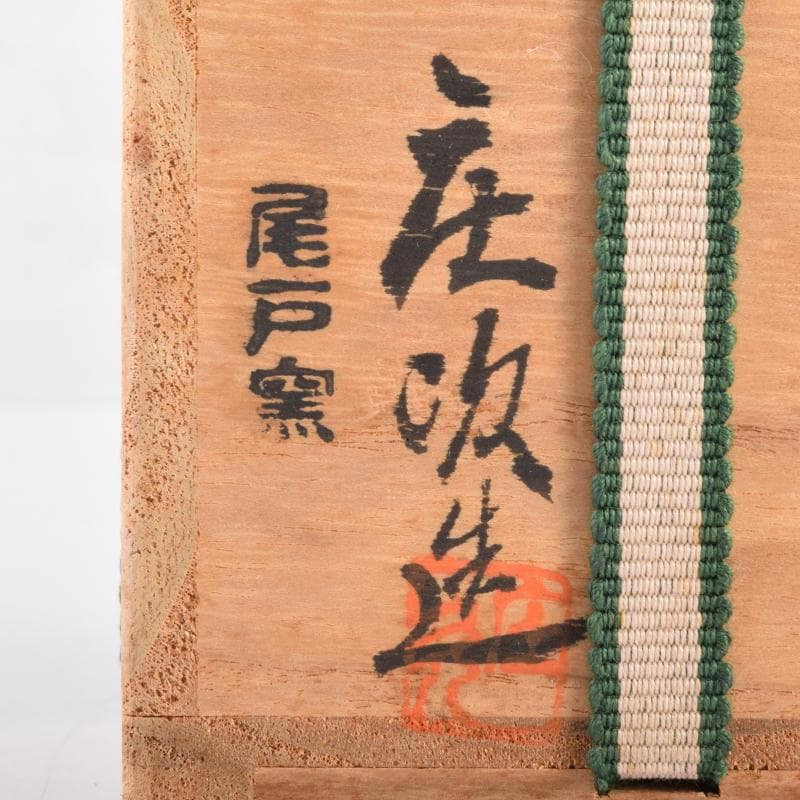 庄次造
尾戸窯